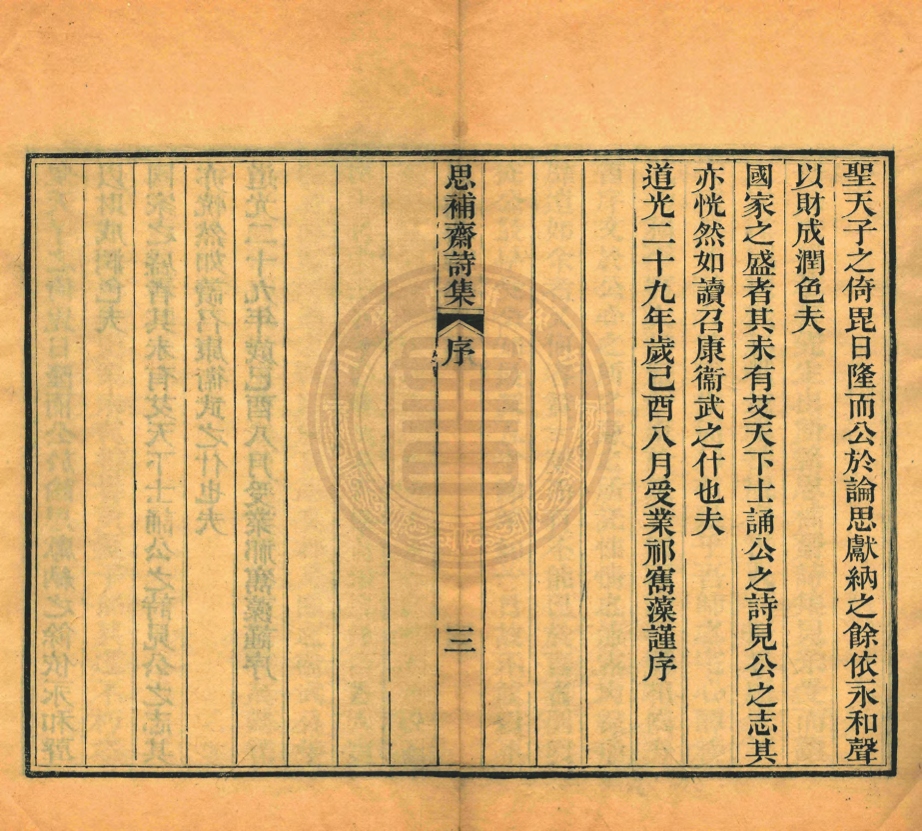 聖天子之倚毘日隆而公於論思獻納之餘依永和聲
以財成潤色夫
國家之盛者其未有艾天下士誦公之詩見公之志其
亦恍然如讀召康衞武之什也夫
道光二十九年歲己酉八月受業祁寯藻謹序
思補齋詩集 序 三